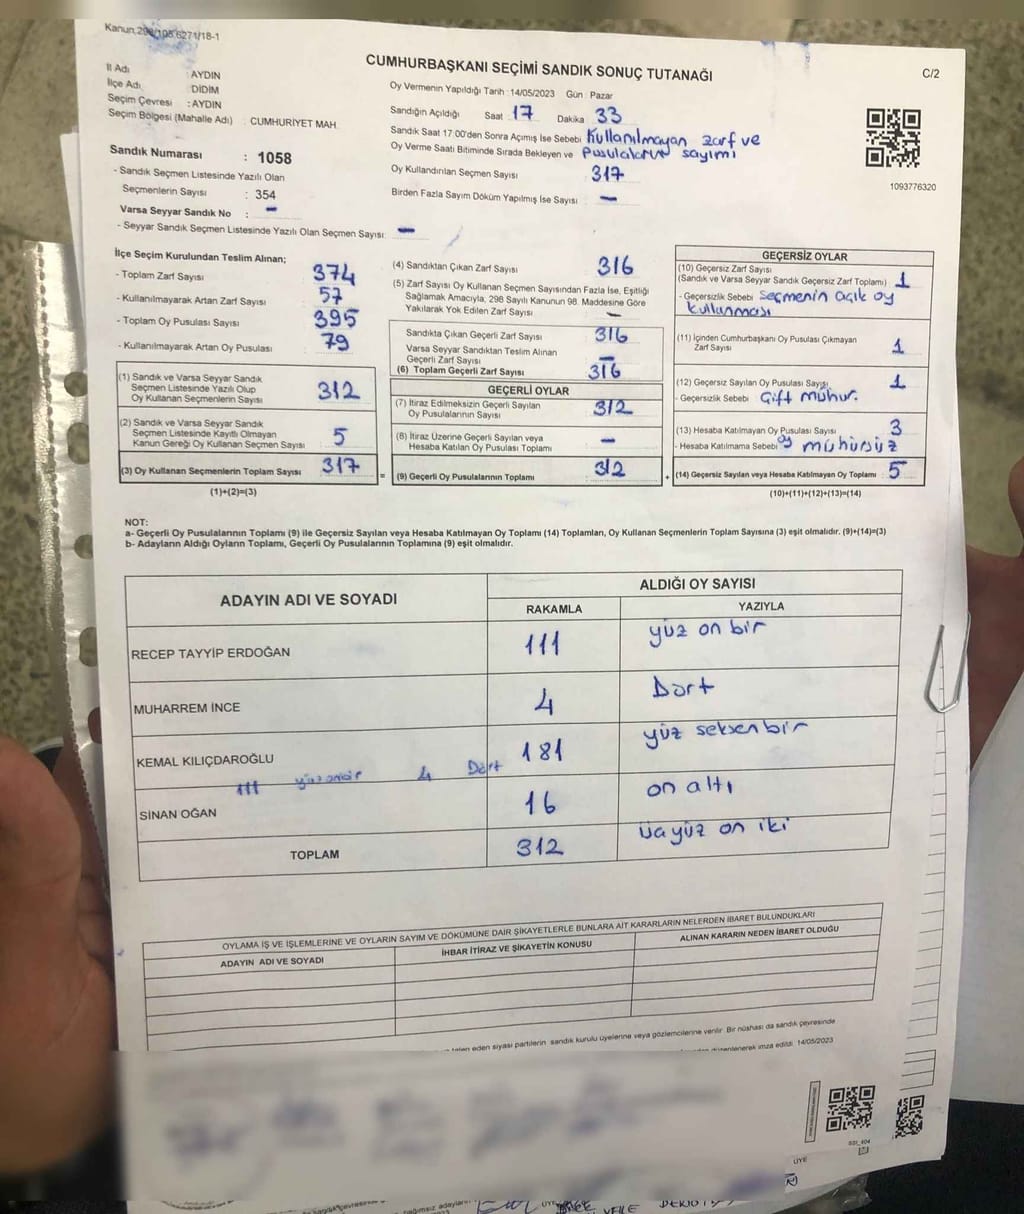 Kanun:298/105.6271/18-1
CUMHURBAŞKANI SEÇİMİ SANDIK SONUÇ TUTANAĞI
C/2
İl Adı : AYDIN
İlçe Adı : DİDİM
Seçim Çevresi : AYDIN
Seçim Bölgesi (Mahalle Adı) : CUMHURİYET MAH.
Sandık Numarası : 1058
- Sandık Seçmen Listesinde Yazılı Olan
Seçmenlerin Sayısı : 354
Varsa Seyyar Sandık No : -
- Seyyar Sandık Seçmen Listesinde Yazılı Olan Seçmen Sayısı: -
Oy Vermenin Yapıldığı Tarih :14/05/2023 Gün : Pazar
Sandığın Açıldığı Saat 17 Dakika 33
Sandık Saat 17.00'den Sonra Açılmış İse Sebebi Kullanılmayan zarf ve
Oy Verme Saati Bitiminde Sırada Bekleyen ve pusulaların sayımı
Oy Kullandırılan Seçmen Sayısı 317
Birden Fazla Sayım Döküm Yapılmış İse Sayısı -
1093776320
İlçe Seçim Kurulundan Teslim Alınan;
- Toplam Zarf Sayısı 374
- Kullanılmayarak Artan Zarf Sayısı 57
- Toplam Oy Pusulası Sayısı 395
- Kullanılmayarak Artan Oy Pusulası 79
(1) Sandık ve Varsa Seyyar Sandık
Seçmen Listesinde Yazılı Olup
Oy Kullanan Seçmenlerin Sayısı 312
(2) Sandık ve Varsa Seyyar Sandık
Seçmen Listesinde Kayıtlı Olmayan
Kanun Gereği Oy Kullanan Seçmen Sayısı 5
(3) Oy Kullanan Seçmenlerin Toplam Sayısı 317
(1)+(2)=(3)
(4) Sandıktan Çıkan Zarf Sayısı 316
(5) Zarf Sayısı Oy Kullanan Seçmen Sayısından Fazla İse, Eşitliği
Sağlamak Amacıyla, 298 Sayılı Kanunun 98. Maddesine Göre
Yakılarak Yok Edilen Zarf Sayısı -
Sandıkta Çıkan Geçerli Zarf Sayısı 316
Varsa Seyyar Sandıktan Teslim Alınan
Geçerli Zarf Sayısı -
(6) Toplam Geçerli Zarf Sayısı 316
GEÇERLİ OYLAR
(7) İtiraz Edilmeksizin Geçerli Sayılan
Oy Pusulalarının Sayısı 312
(8) İtiraz Üzerine Geçerli Sayılan veya
Hesaba Katılan Oy Pusulası Toplamı -
= (9) Geçerli Oy Pusulalarının Toplamı 312
GEÇERSİZ OYLAR
(10) Geçersiz Zarf Sayısı
(Sandık ve Varsa Seyyar Sandık Geçersiz Zarf Toplamı) 1
- Geçersizlik Sebebi Seçmenin açık oy
kullanması
(11) İçinden Cumhurbaşkanı Oy Pusulası Çıkmayan
Zarf Sayısı 1
(12) Geçersiz Sayılan Oy Pusulası Sayısı 1
- Geçersizlik Sebebi Çift mühür.
(13) Hesaba Katılmayan Oy Pusulası Sayısı 3
- Hesaba Katılmama Sebebi oy mühürsüz
+ (14) Geçersiz Sayılan veya Hesaba Katılmayan Oy Toplamı 5
(10)+(11)+(12)+(13)=(14)
NOT:
a- Geçerli Oy Pusulalarının Toplamı (9) ile Geçersiz Sayılan veya Hesaba Katılmayan Oy Toplamı (14) Toplamları, Oy Kullanan Seçmenlerin Toplam Sayısına (3) eşit olmalıdır. (9)+(14)=(3)
b- Adayların Aldığı Oyların Toplamı, Geçerli Oy Pusulalarının Toplamına (9) eşit olmalıdır.
ADAYIN ADI VE SOYADI
ALDIĞI OY SAYISI
RAKAMLA YAZIYLA
RECEP TAYYİP ERDOĞAN 111 yüz on bir
MUHARREM İNCE 4 Dört
KEMAL KILIÇDAROĞLU 181 yüz seksen bir
111 yüz onbir 4 Dört
SİNAN OĞAN 16 on altı
TOPLAM 312 üçyüz on iki
OYLAMA İŞ VE İŞLEMLERİNE VE OYLARIN SAYIM VE DÖKÜMÜNE DAİR ŞİKAYETLERLE BUNLARA AİT KARARLARIN NELERDEN İBARET BULUNDUKLARI
ADAYIN ADI VE SOYADI
İHBAR İTİRAZ VE ŞİKAYETİN KONUSU
ALINAN KARARIN NEDEN İBARET OLDUĞU
talep eden siyasi partilerin sandık kurulu üyelerine veya gözlemcilerine verilir. Bir nüshası da sandık çevresinde
düzenlenerek imza edildi. 14/05/2023
ÜYE